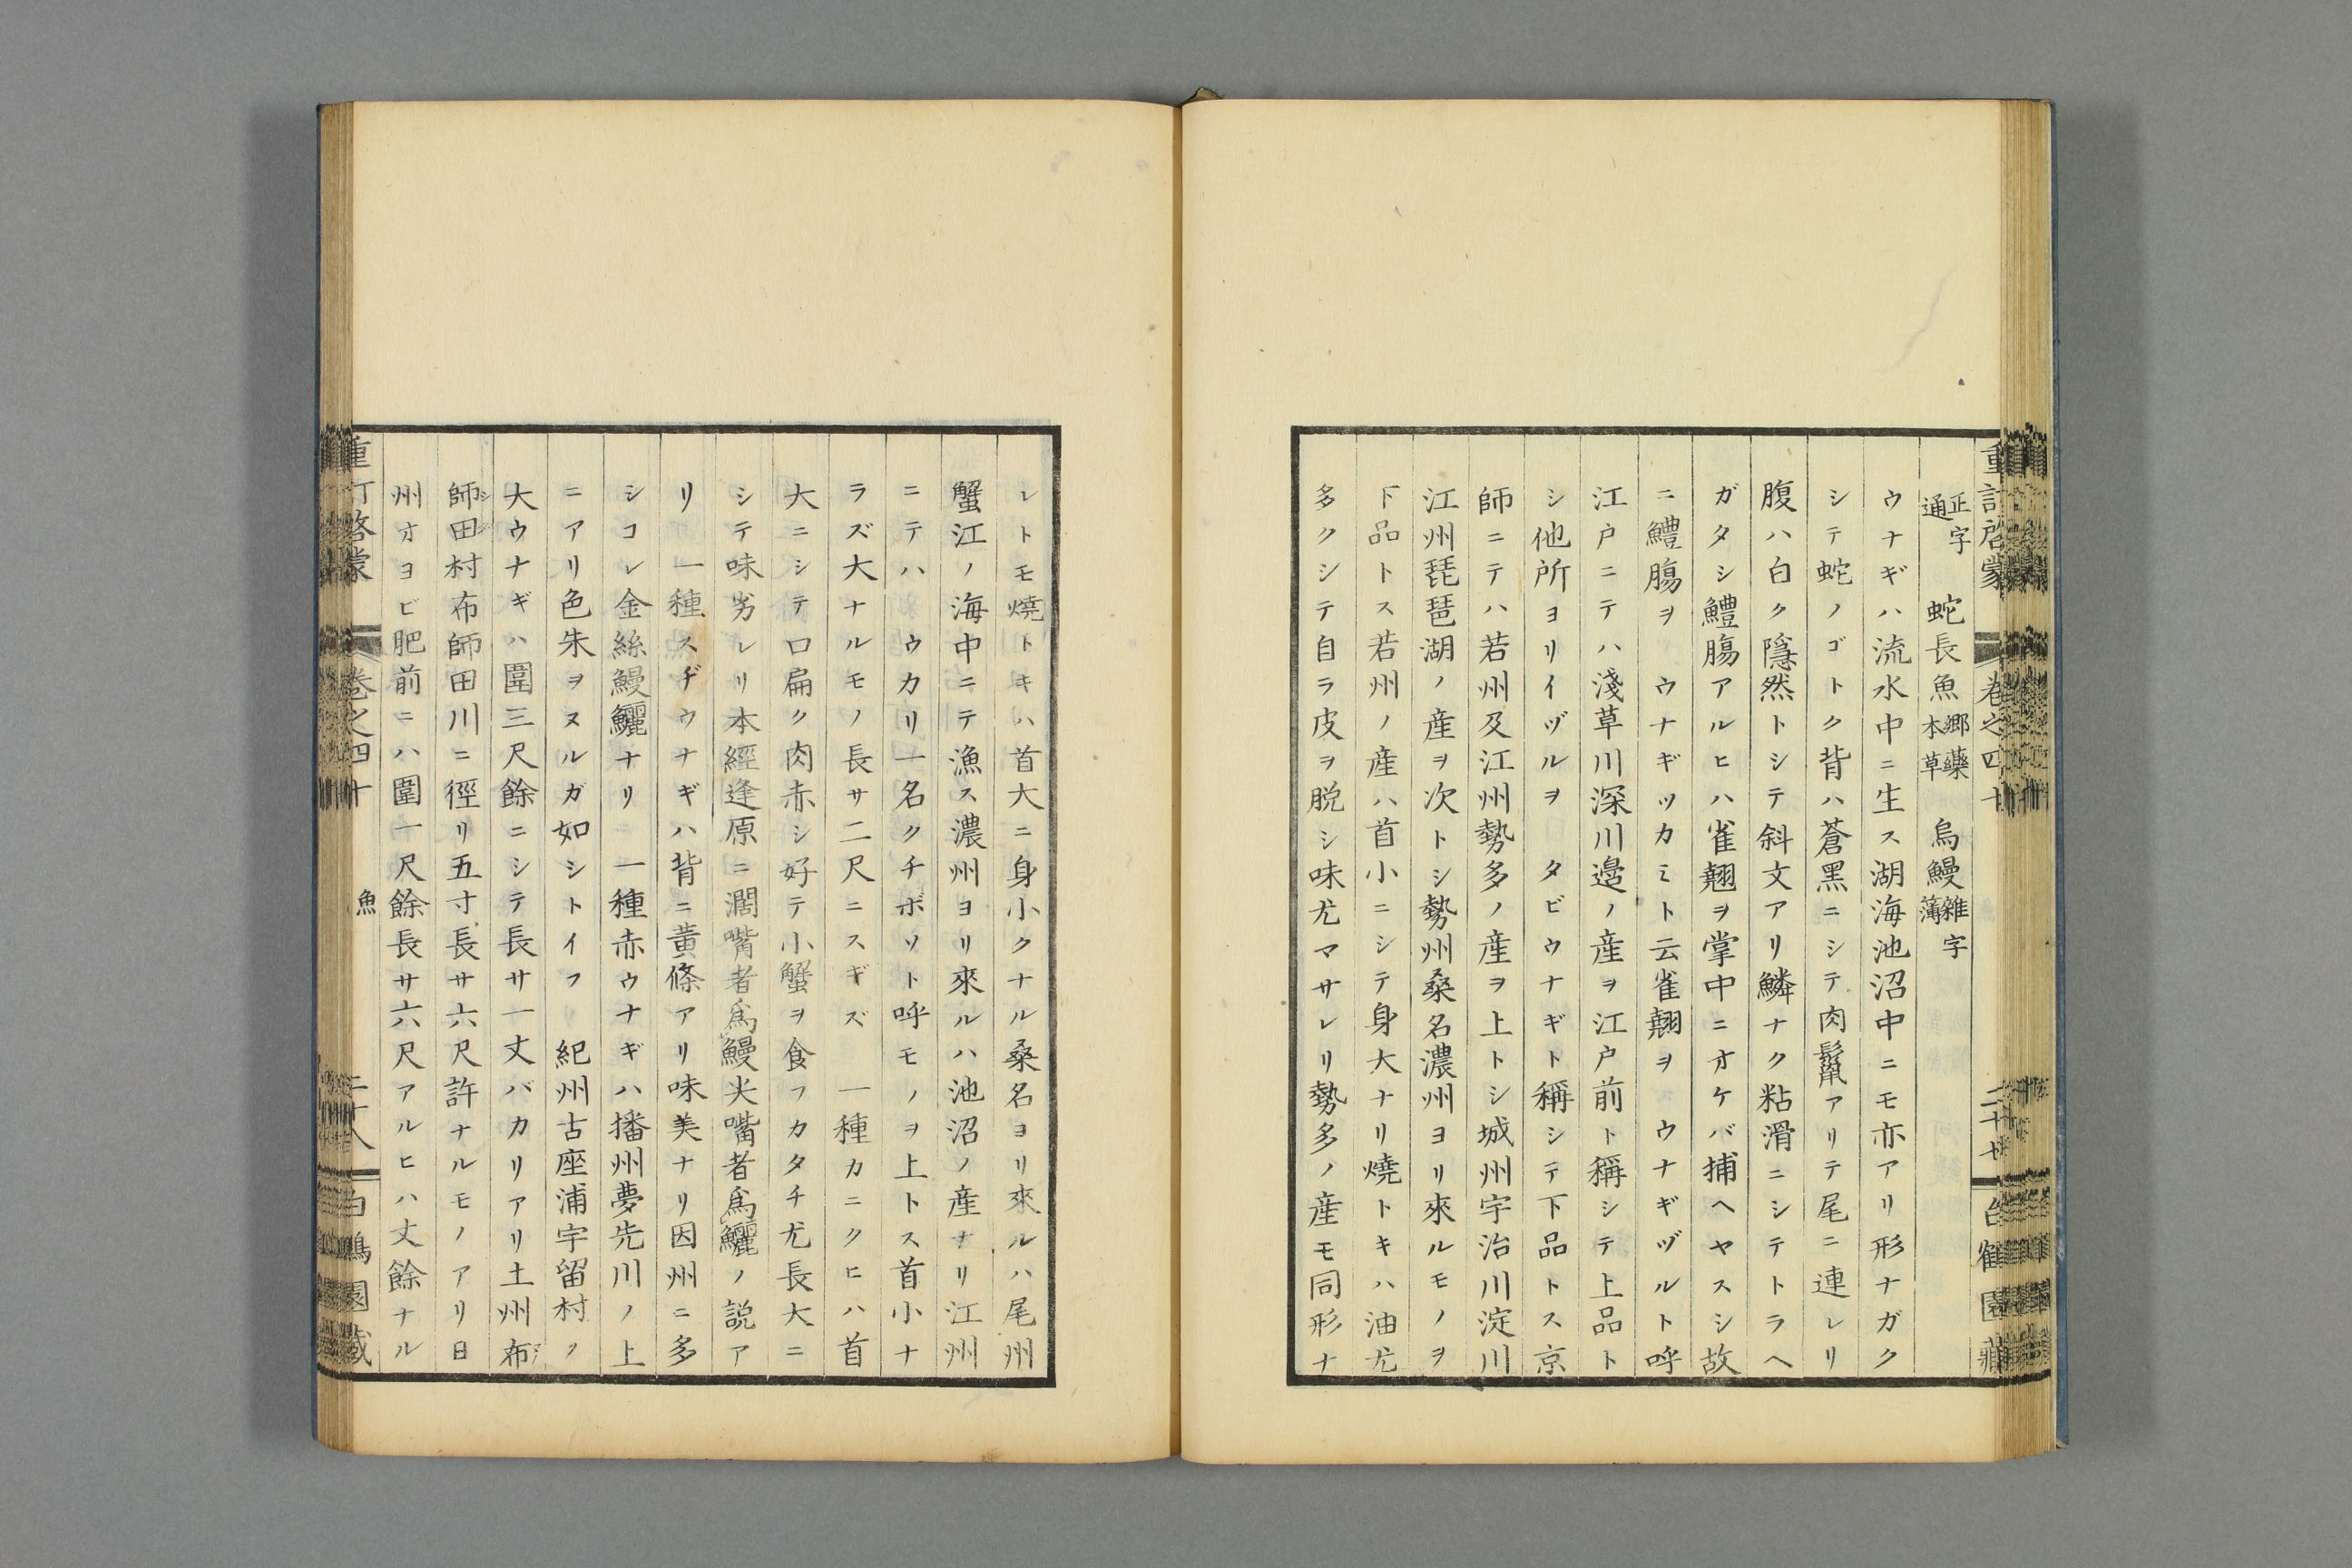 重訂啓蒙 卷之四十 二十七 白鶴園藏
正字通 蛇長魚 郷藥本草 烏鰻 雜字簿
ウナギハ流水中ニ生ス湖海池沼中ニモ亦アリ形ナガク
シテ蛇ノゴトク背ハ蒼黑ニシテ肉鬣アリテ尾ニ連レリ
腹ハ白ク隱然トシテ斜文アリ鱗ナク粘滑ニシテトラヘ
ガタシ鱧腸アルヒハ雀翹ヲ掌中ニオケバ捕ヘヤスシ故
ニ鱧腸ヲ ウナギツカミト云雀翹ヲ ウナギヅルト呼
江戸ニテハ淺草川深川邉ノ産ヲ江戸前ト稱シテ上品ト
シ他所ヨリイヅルヲ タビウナギト稱シテ下品トス京
師ニテハ若州及江州勢多ノ産ヲ上トシ城州宇治川淀川
江州琵琶湖ノ産ヲ次トシ勢州桑名濃州ヨリ來ルモノヲ
下品トス若州ノ産ハ首小ニシテ身大ナリ燒トキハ油尤
多クシテ自ラ皮ヲ脱シ味尤マサレリ勢多ノ産モ同形ナ
レトモ燒トキハ首大ニ身小クナル桑名ヨリ來ルハ尾州
蟹江ノ海中ニテ漁ス濃州ヨリ來ルハ池沼ノ産ナリ江州
ニテハ ウカリ一名クチボソト呼モノヲ上トス首小ナ
ラズ大ナルモノ長サ二尺ニスギズ 一種カニクヒハ首
大ニシテ口扁ク肉赤シ好テ小蟹ヲ食フカタチ尤長大ニ
シテ味劣レリ本經逢原ニ濶嘴者爲鰻尖嘴者爲鱺ノ説ア
リ 一種スヂウナギハ背ニ黄條アリ味美ナリ因州ニ多
シコレ金絲鰻鱺ナリ 一種赤ウナギハ播州夢先川ノ上
ニアリ色朱ヲヌルガ如シトイフ 紀州古座浦宇留村ノ
大ウナギハ圍三尺餘ニシテ長サ一丈バカリアリ土州布
師田村布師田川ニ徑リ五寸長サ六尺許ナルモノアリ日
州オヨビ肥前ニハ圍一尺餘長サ六尺アルヒハ丈餘ナル
重訂啓蒙 卷之四十 魚 二十八 白鶴園藏